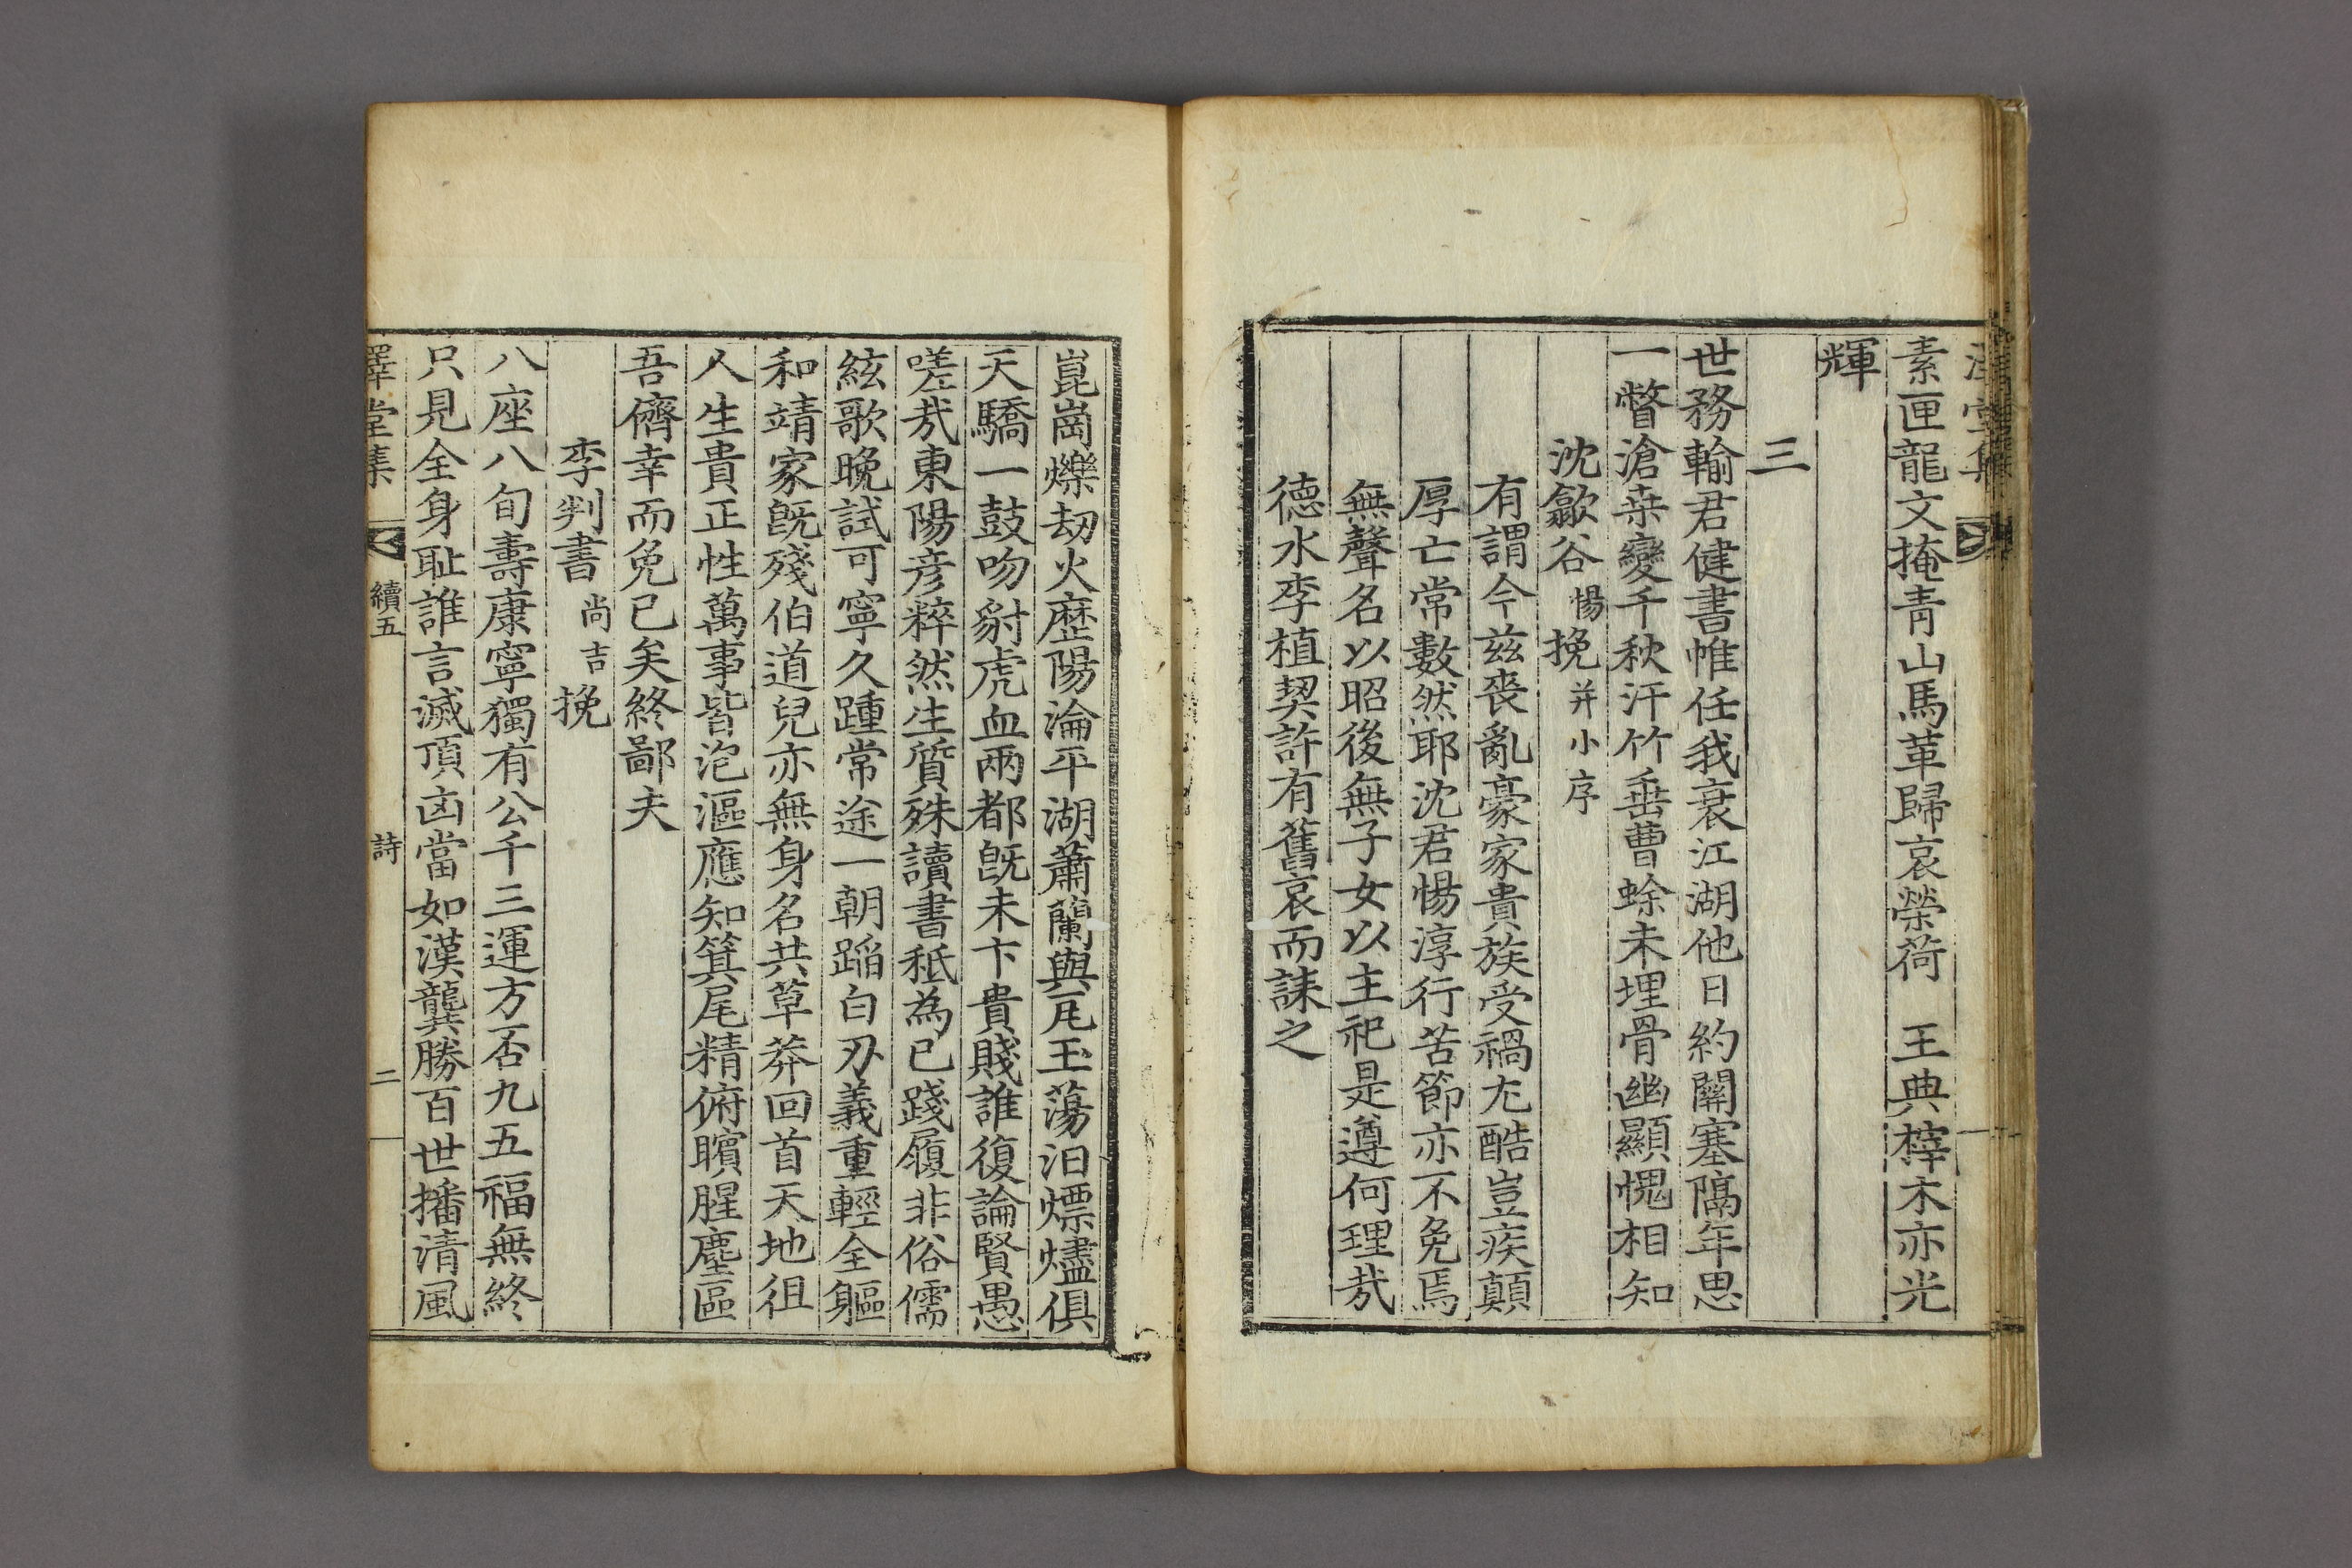 素匣龍文掩青山馬革歸哀榮荷 王典榟木亦光
輝
三
世務輸君健書帷任我衰江湖他日約關塞隔年思
一瞥滄桒變千秋汗竹垂曹蜍未埋骨幽顯愧相知
沈歙谷惕挽并小序
有謂今兹丧亂豪家貴族受禍尤酷豈疾顛
厚亡常數然耶沈君惕淳行苦節亦不免焉
無聲名以昭後無子女以主祀是遵何理㦲
德水李植契許有舊哀而誄之
崑崗爍刼火歷陽淪平湖蕭蘭與瓦玉蕩汩熛燼俱
天驕一鼓吻豺虎血兩都旣未卞貴賤誰復論賢愚
嗟㦲東陽彦粹然生質殊讀書秪為已踐履非俗儒
絃歌晚試可寧久踵常途一朝蹈白刃義重輕全軀
和靖家旣殘伯道兒亦無身名共草莽回首天地徂
人生貴正性萬事皆泡漚應知箕尾精俯矉腥塵區
吾儕幸而免已矣終鄙夫
李判書尚吉挽
八座八旬壽康寧獨有公千三運方否九五福無終
只見全身耻誰言滅頂凶當如漢龔勝百世播清風
澤堂集 續五 詩 二